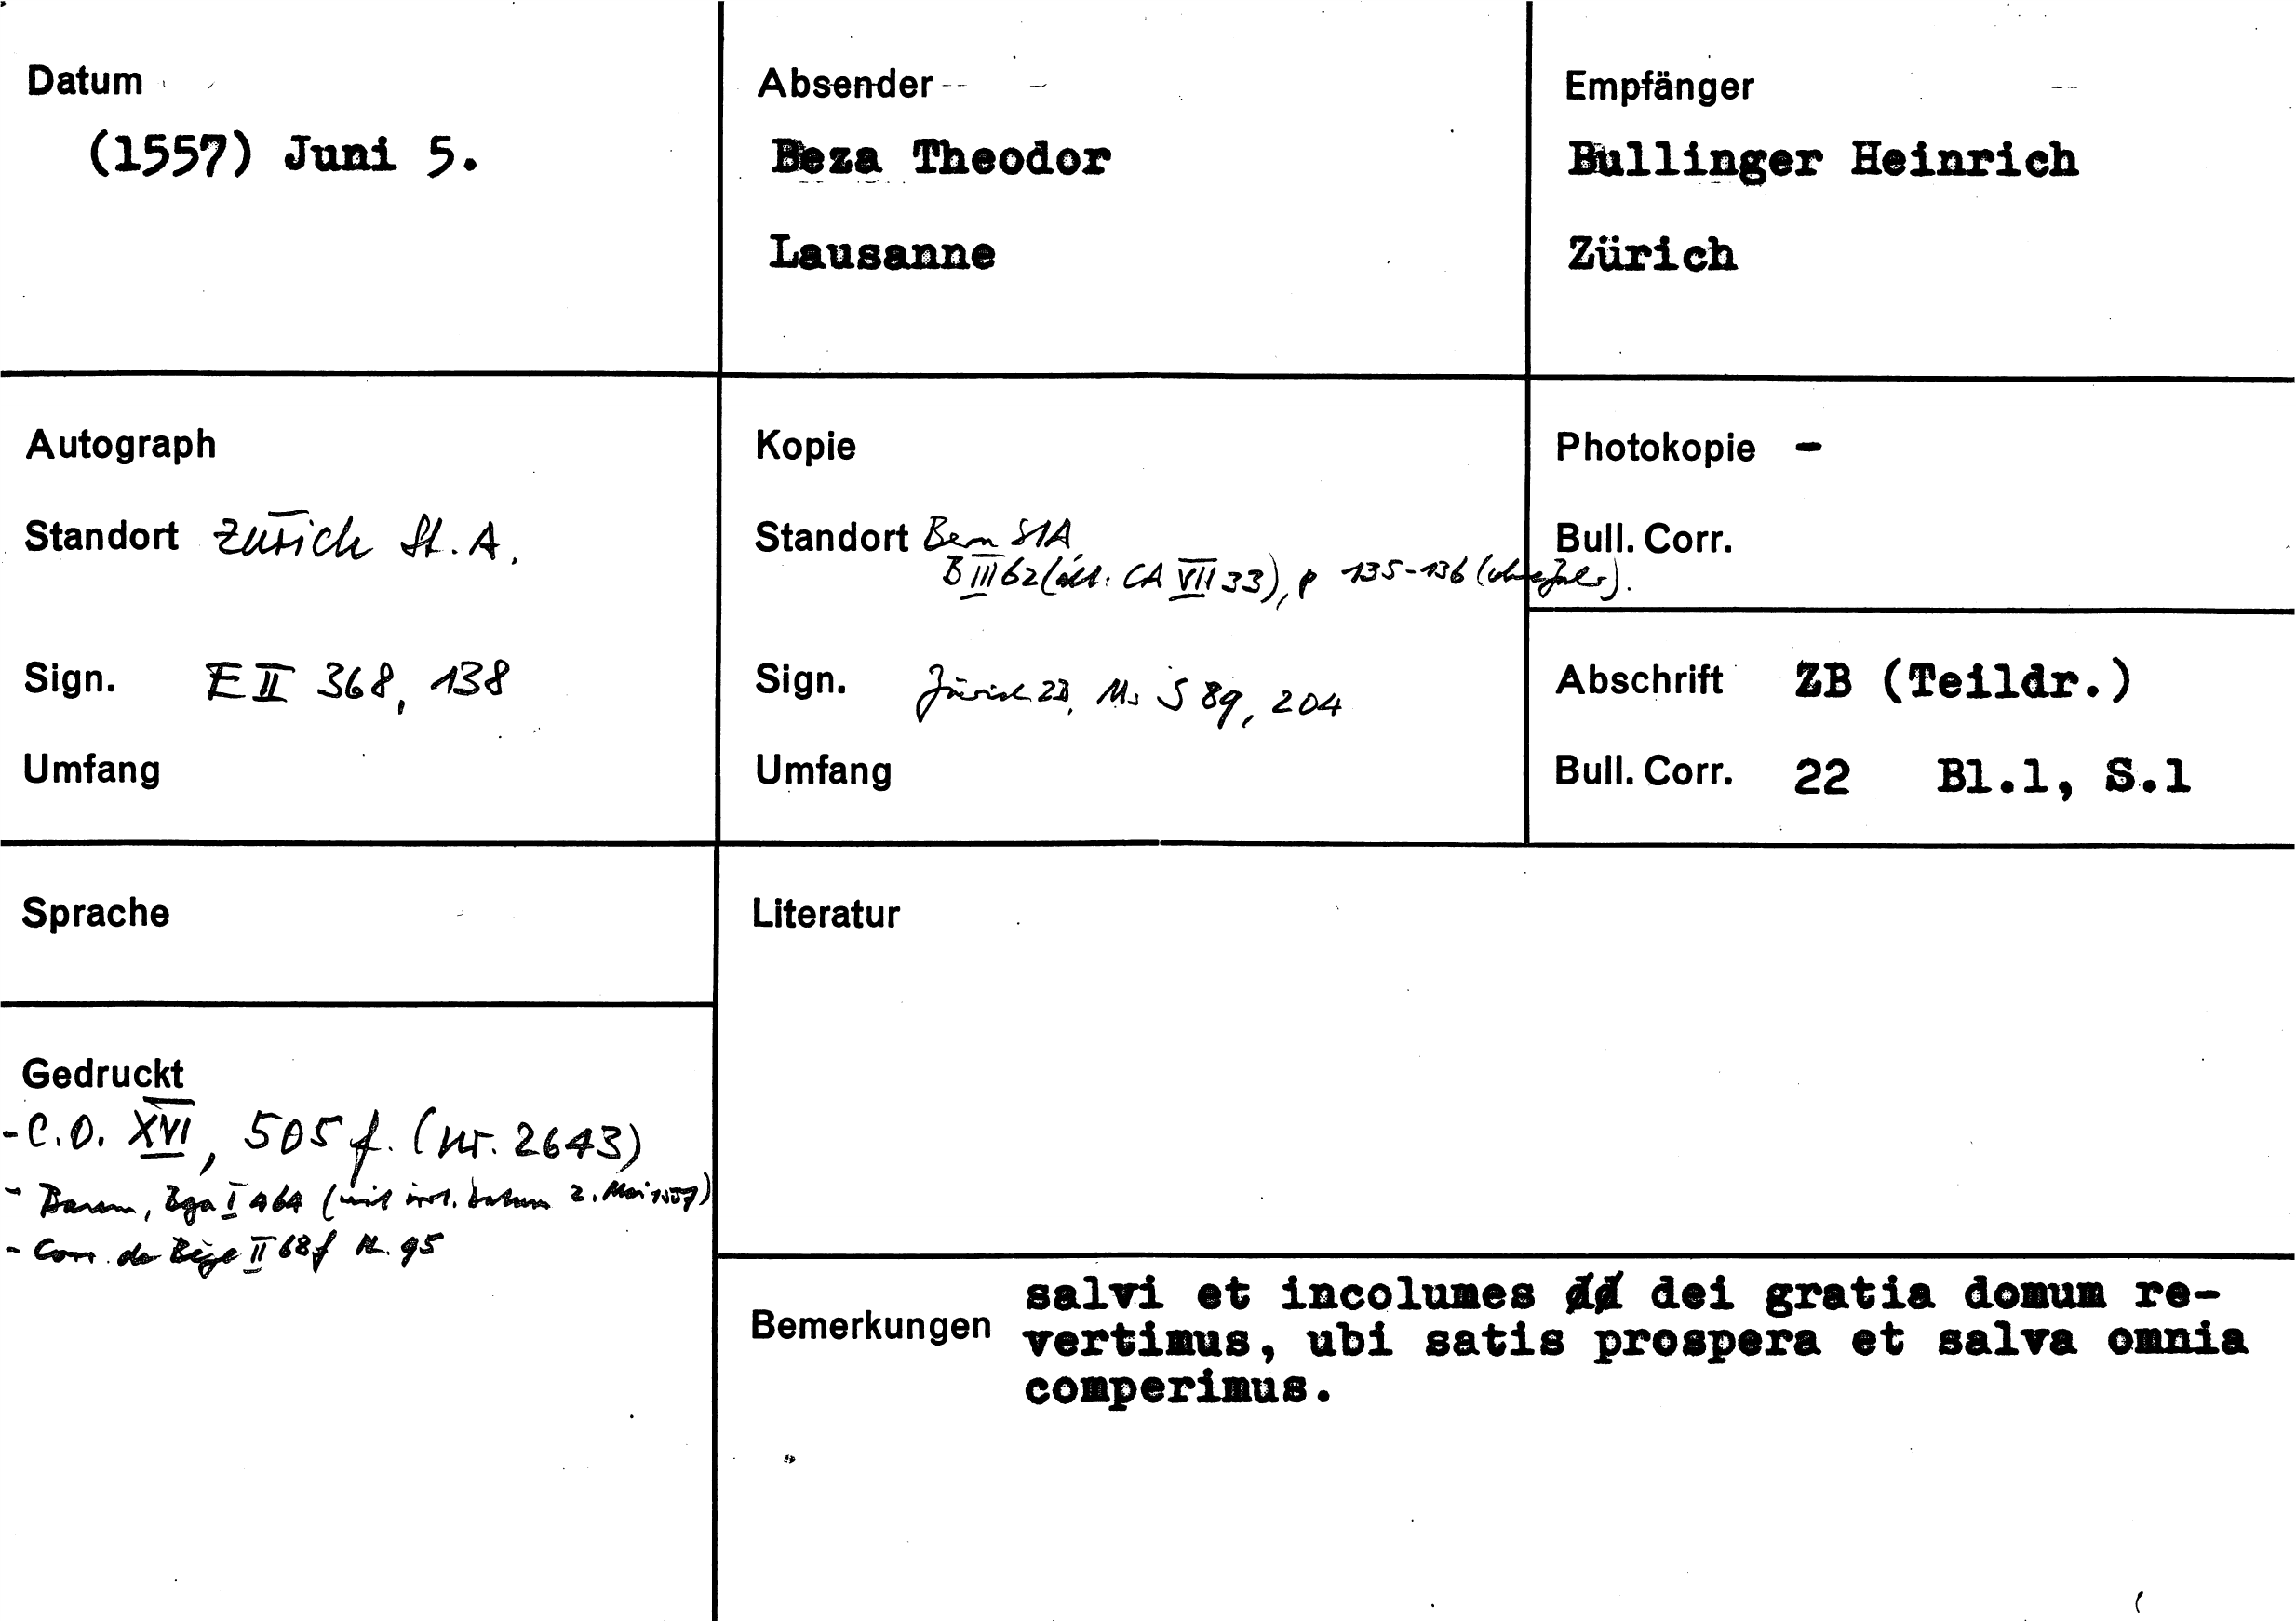 Datum
(1557) Juni 5.
Absender
Beza Theodor
Lausanne
Empfänger
Bullinger Heinrich
Zürich
Autograph
Standort Zürich St. A.
Sign. E II 368, 138
Umfang
Kopie
Standort Bern StA
B III 62 (alt: CA VII 33), p 135-136 (ohne Jahr).
Sign. Zürich ZB, Ms S 89, 204
Umfang
Photokopie -
Bull. Corr.
Abschrift ZB (Teildr.)
Bull. Corr. 22 Bl.1, S.1
Sprache
Literatur
Gedruckt
- C.O. XVI, 505 f. (Nr. 2643)
- Baum, Beza I 464 (mit irrt. Datum 2. Mai 1557)
- Corr. de Bèze II 68f Nr. 95
Bemerkungen
salvi et incolumes dei gratia domum re-
vertimus, ubi satis prospera et salva omnia
comperimus.